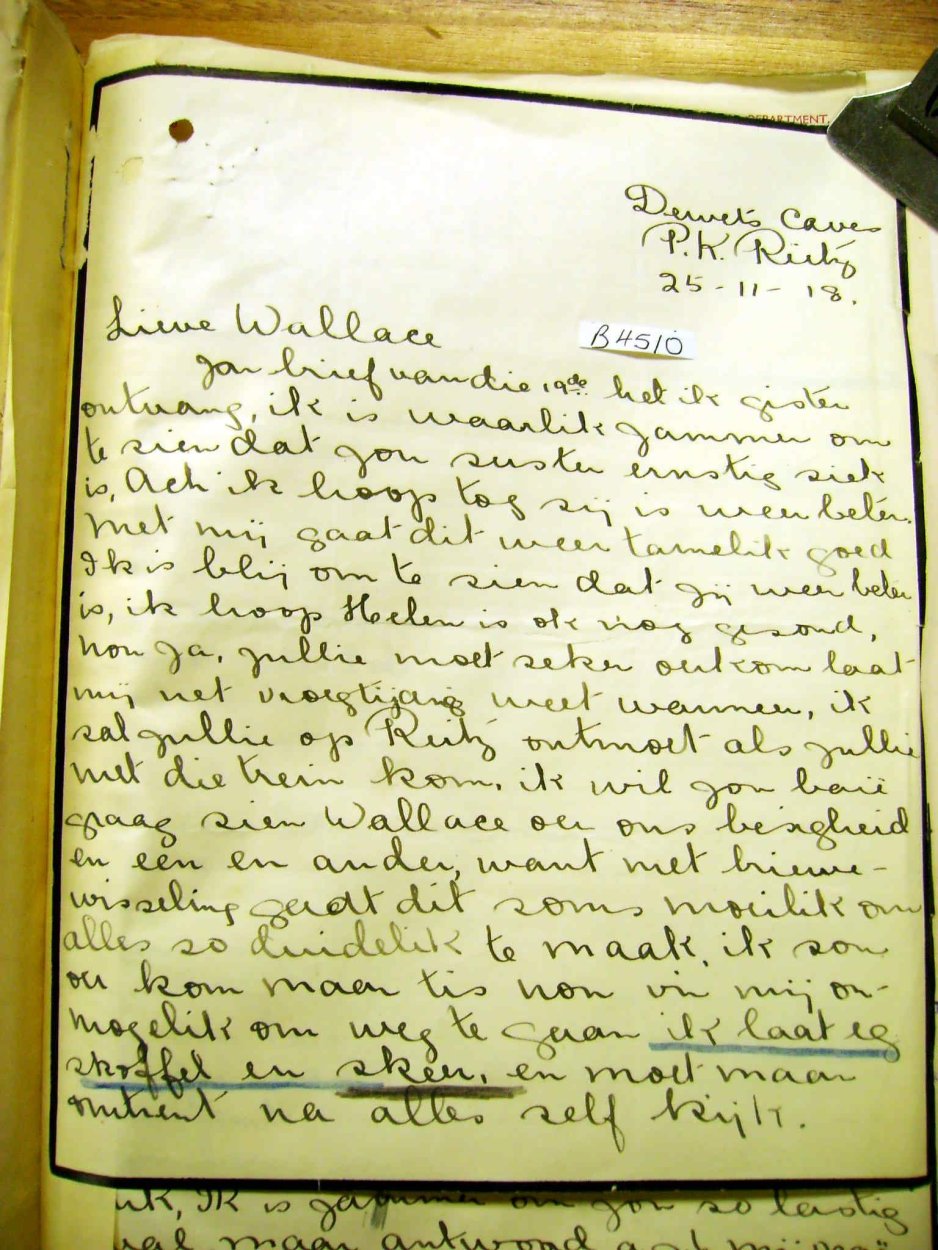 DEPARTMENT,
Dewets Caves
P.K. Reitz
25-11-18.
Lieve Wallace
B4510
Jou brief van die 19de het ik gister
ontvang, ik is waarlik jammer om
te sien dat jou suster ernstig siek
is, Ach ik hoop tog sij is weer beter.
Met mij gaat dit weer tamelik goed
Ik is blij om te sien dat jij weer beter
is, ik hoop Helen is ok nog gesond,
nou ja, jullie moet seker oerkom laat
mij net vroegtijdig weet wanneer, ik
sal jullie op Reitz ontmoet als jullie
met die trein kom. ik wil jou baië
graag sien Wallace oer ons besigheid
en een en ander, want met briewe-
wisseling gaat dit soms moeilik om
alles so duidelik te maak, ik sou
oer kom maar tis nou vir mij on-
mogelik om weg te gaan ik laat eg
skoffel en skeer, en moet maar
omtrent na alles self kijk.
Ik is jammer om jou so lastig
val maar antwoord